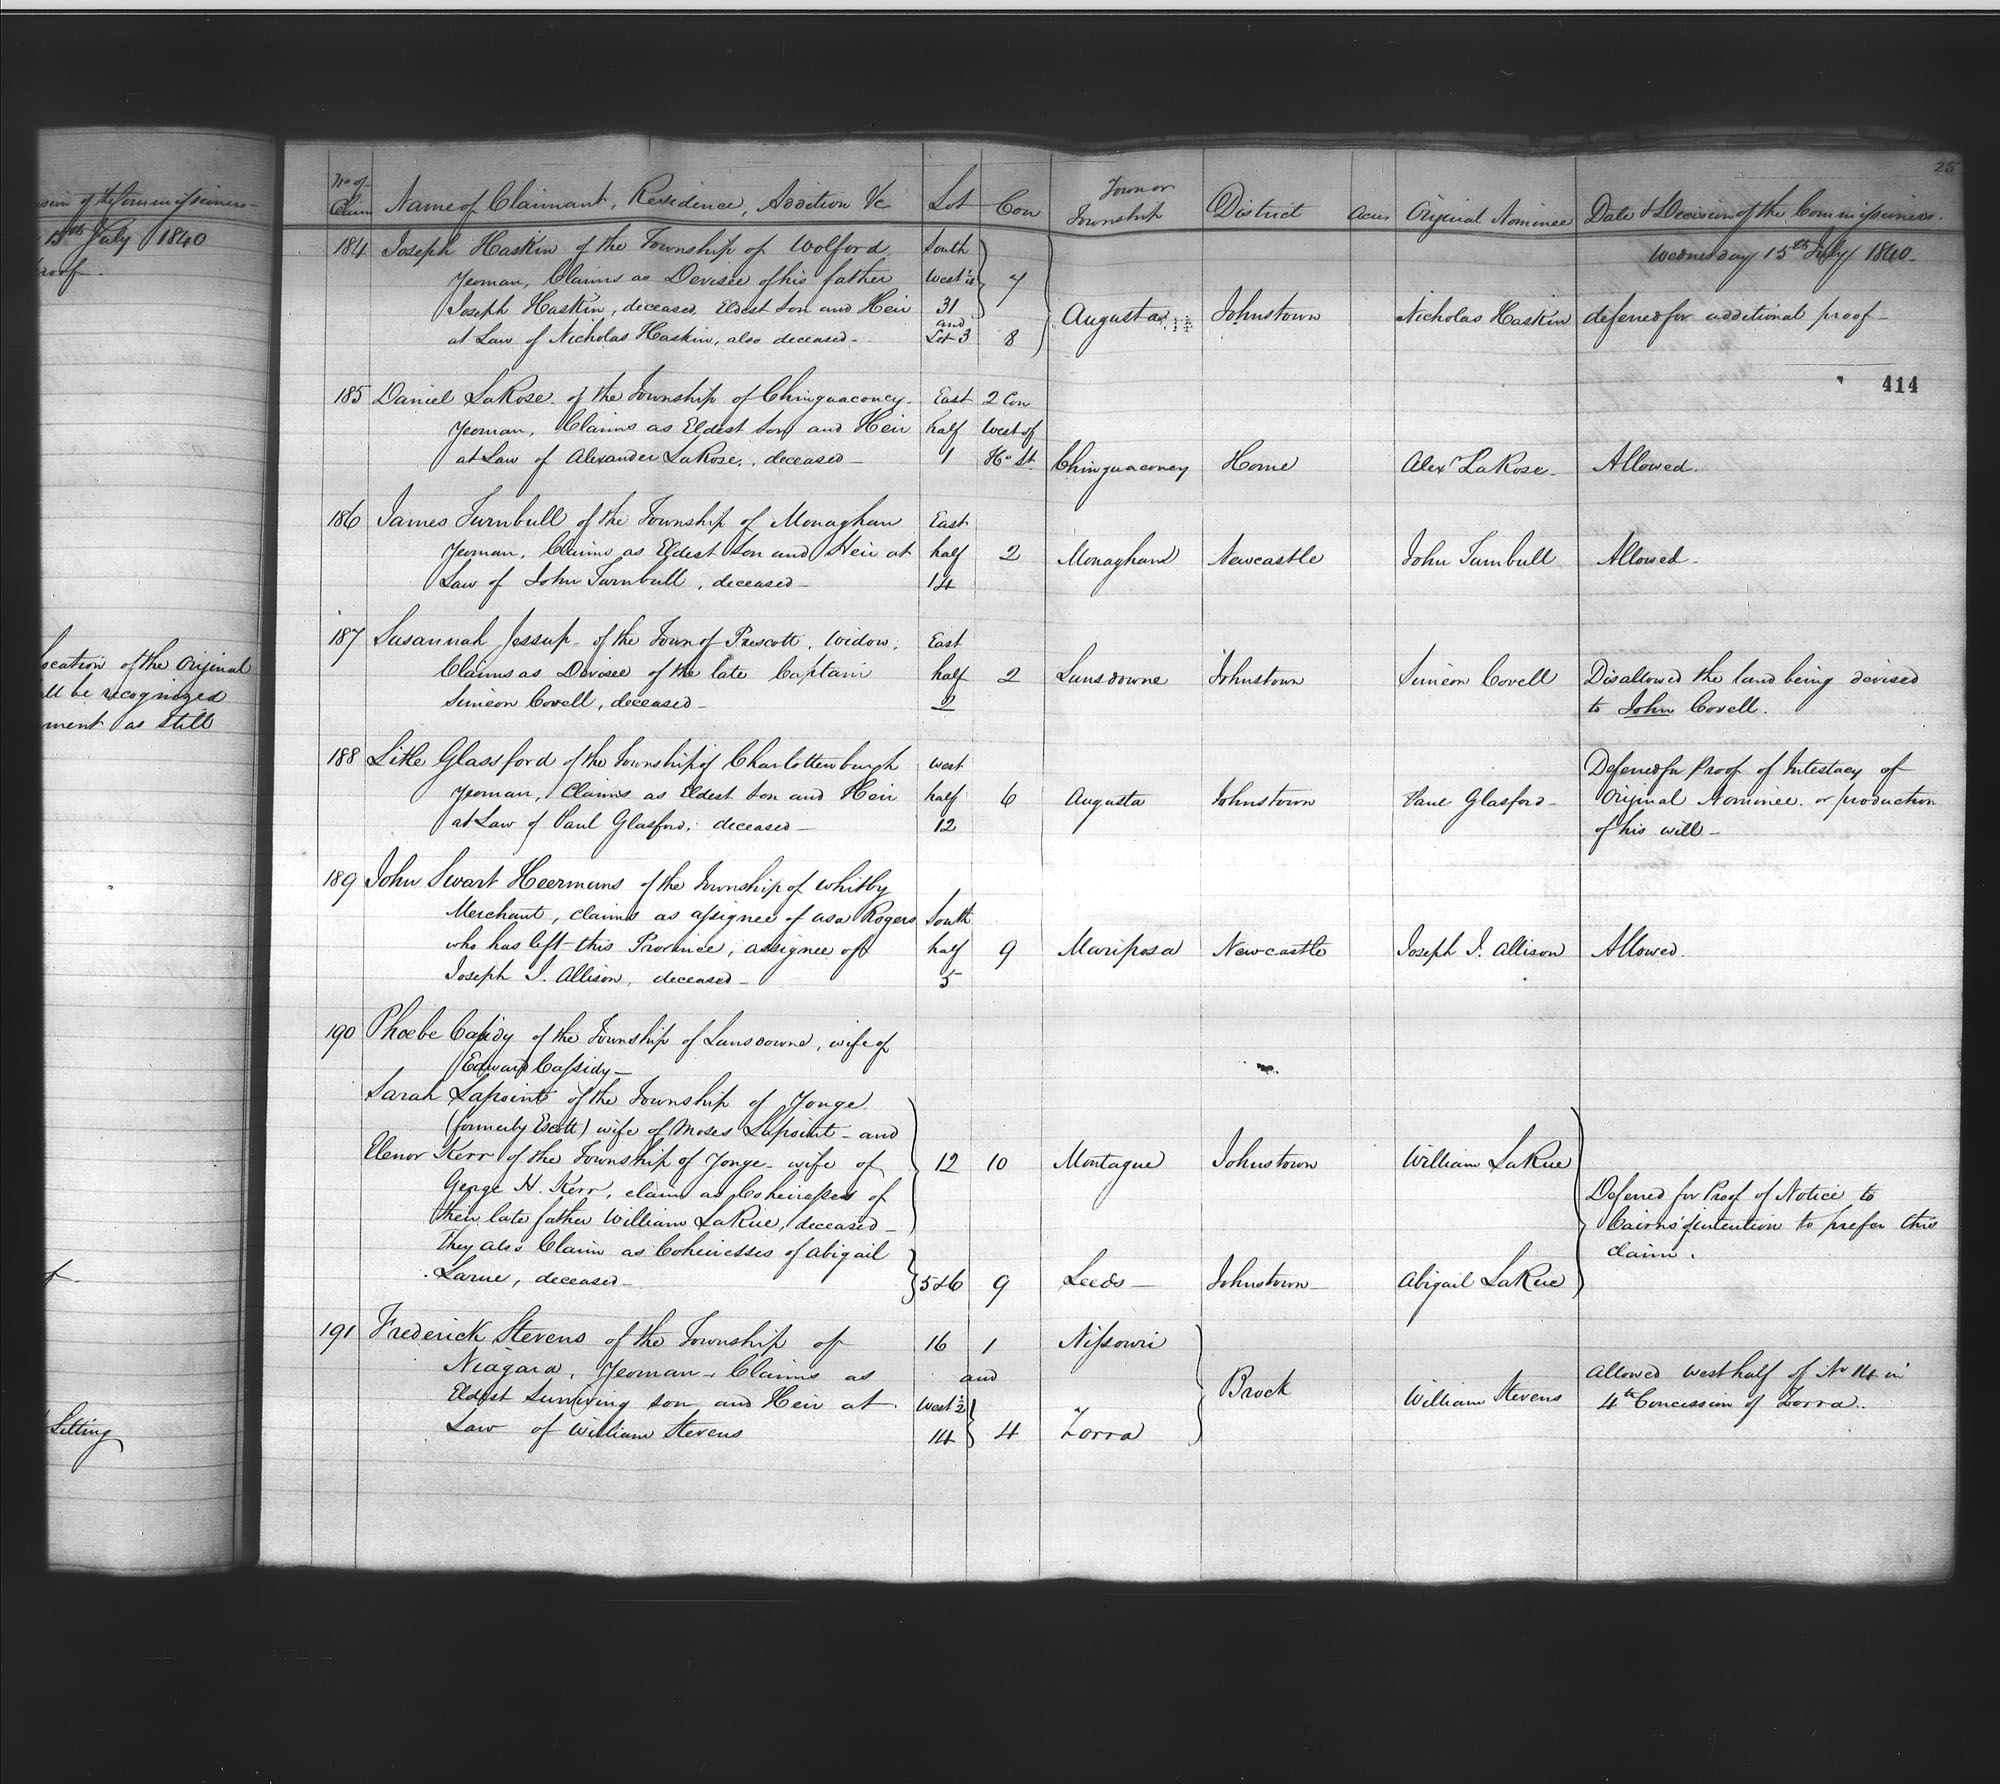 sion of the Commissioners
15th July 1840
proof.
location of the Original
all be recognized
ment as still
of.
Sitting
25
No of Claim Name of Claimant, Residence, Addition &c Lot Con Town or Township District Acres Original Nominee Date & Decision of the Commissioners.
Wednesday 15th July 1840.
184 Joseph Haskin of the Township of Wolford South
Yeoman, Claims as Devisee of his father West ¼ 7
Joseph Haskin, deceased, Eldest Son and Heir 31 Augusta Johnstown Nicholas Haskin deferred for additional proof
and
at Law of Nicholas Haskin, also deceased Lot 3 8
414
185 Daniel LaRose of the Township of Chinguacoucy East 2 Con
Yeoman, Claims as Eldest Son and Heir half West of
at Law of Alexander LaRose, deceased 1 Ho St. Chinguacoucy Home Alexr LaRose Allowed.
186 James Turnbull of the Township of Monaghan East
Yeoman, Claims as Eldest Son and Heir at half 2 Monaghan Newcastle John Turnbull Allowed
Law of John Turnbull, deceased 14
187 Susannah Jessup of the Town of Prescott, Widow, East
Claims as Devisee of the late Captain half 2 Lansdowne Johnstown Simeon Covell Disallowed the land being devised
Simeon Covell, deceased 2 to John Covell.
188 Litle Glassford of the Township of Charlottenburgh West Deferred for Proof of Intestacy of
Yeoman, Claims as Eldest Son and Heir half 6 Augusta Johnstown Paul Glasford Original Nominee or production
at Law of Paul Glasford, deceased 12 of his will
189 John Swart Heermans of the Township of Whitby
Merchant, claims as assignee of Asa Rogers South
who has left this Province, assignee of half 9 Mariposa Newcastle Joseph J. Allison Allowed.
Joseph J. Allison, deceased 5
190 Phoebe Cassidy of the Township of Lansdowne, wife of
Edward Cassidy
Sarah Lapoint of the Township of Yonge
(formerly Escott) wife of Moses Lapoint and
Elenor Kerr of the Township of Yonge wife of 12 10 Montague Johnstown William LaRue
George H. Kerr, claim as Coheiresses of Deferred for Proof of Notice to
their late father William LaRue, deceased Cairns' intention to prefer this
They also Claim as Coheiresses of Abigail claim.
Larue, deceased 5&6 9 Leeds Johnstown Abigail LaRue
191 Frederick Stevens of the Township of 16 1 Nissouri
Niagara, Yeoman, Claims as and Allowed West half of No 14 in
Eldest Surviving son and Heir at West ½ Brock William Stevens 4th Concession of Zorra.
Law of William Stevens 14 4 Zorra